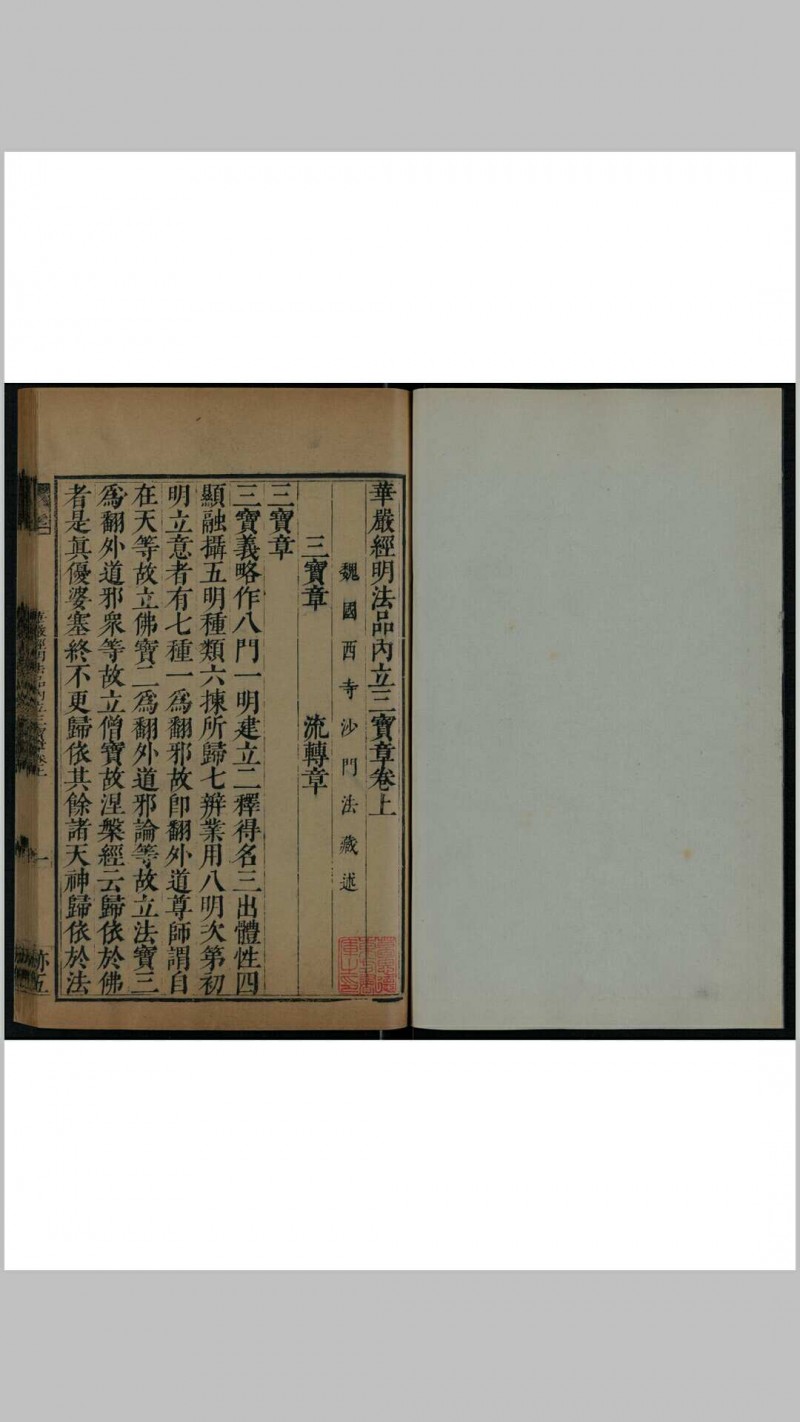 華嚴經明法品內立三寶章卷上
魏國西寺沙門法藏述
三寶章　流轉章
三寶章
三寶義略作八門一明建立二釋得名三出體性四
顯融攝五明種類六揀所歸七辨業用八明次第初
明立意者有七種一爲翻邪故卽翻外道尊師謂自
在天等故立佛寶二爲翻外道邪論等故立法寶三
爲翻外道邪衆等故立僧寶故涅槃經云歸依於佛
者是眞優婆塞終不更歸依其餘諸天神歸依於法
華嚴經明法品內立三寶章卷上
一
亦五